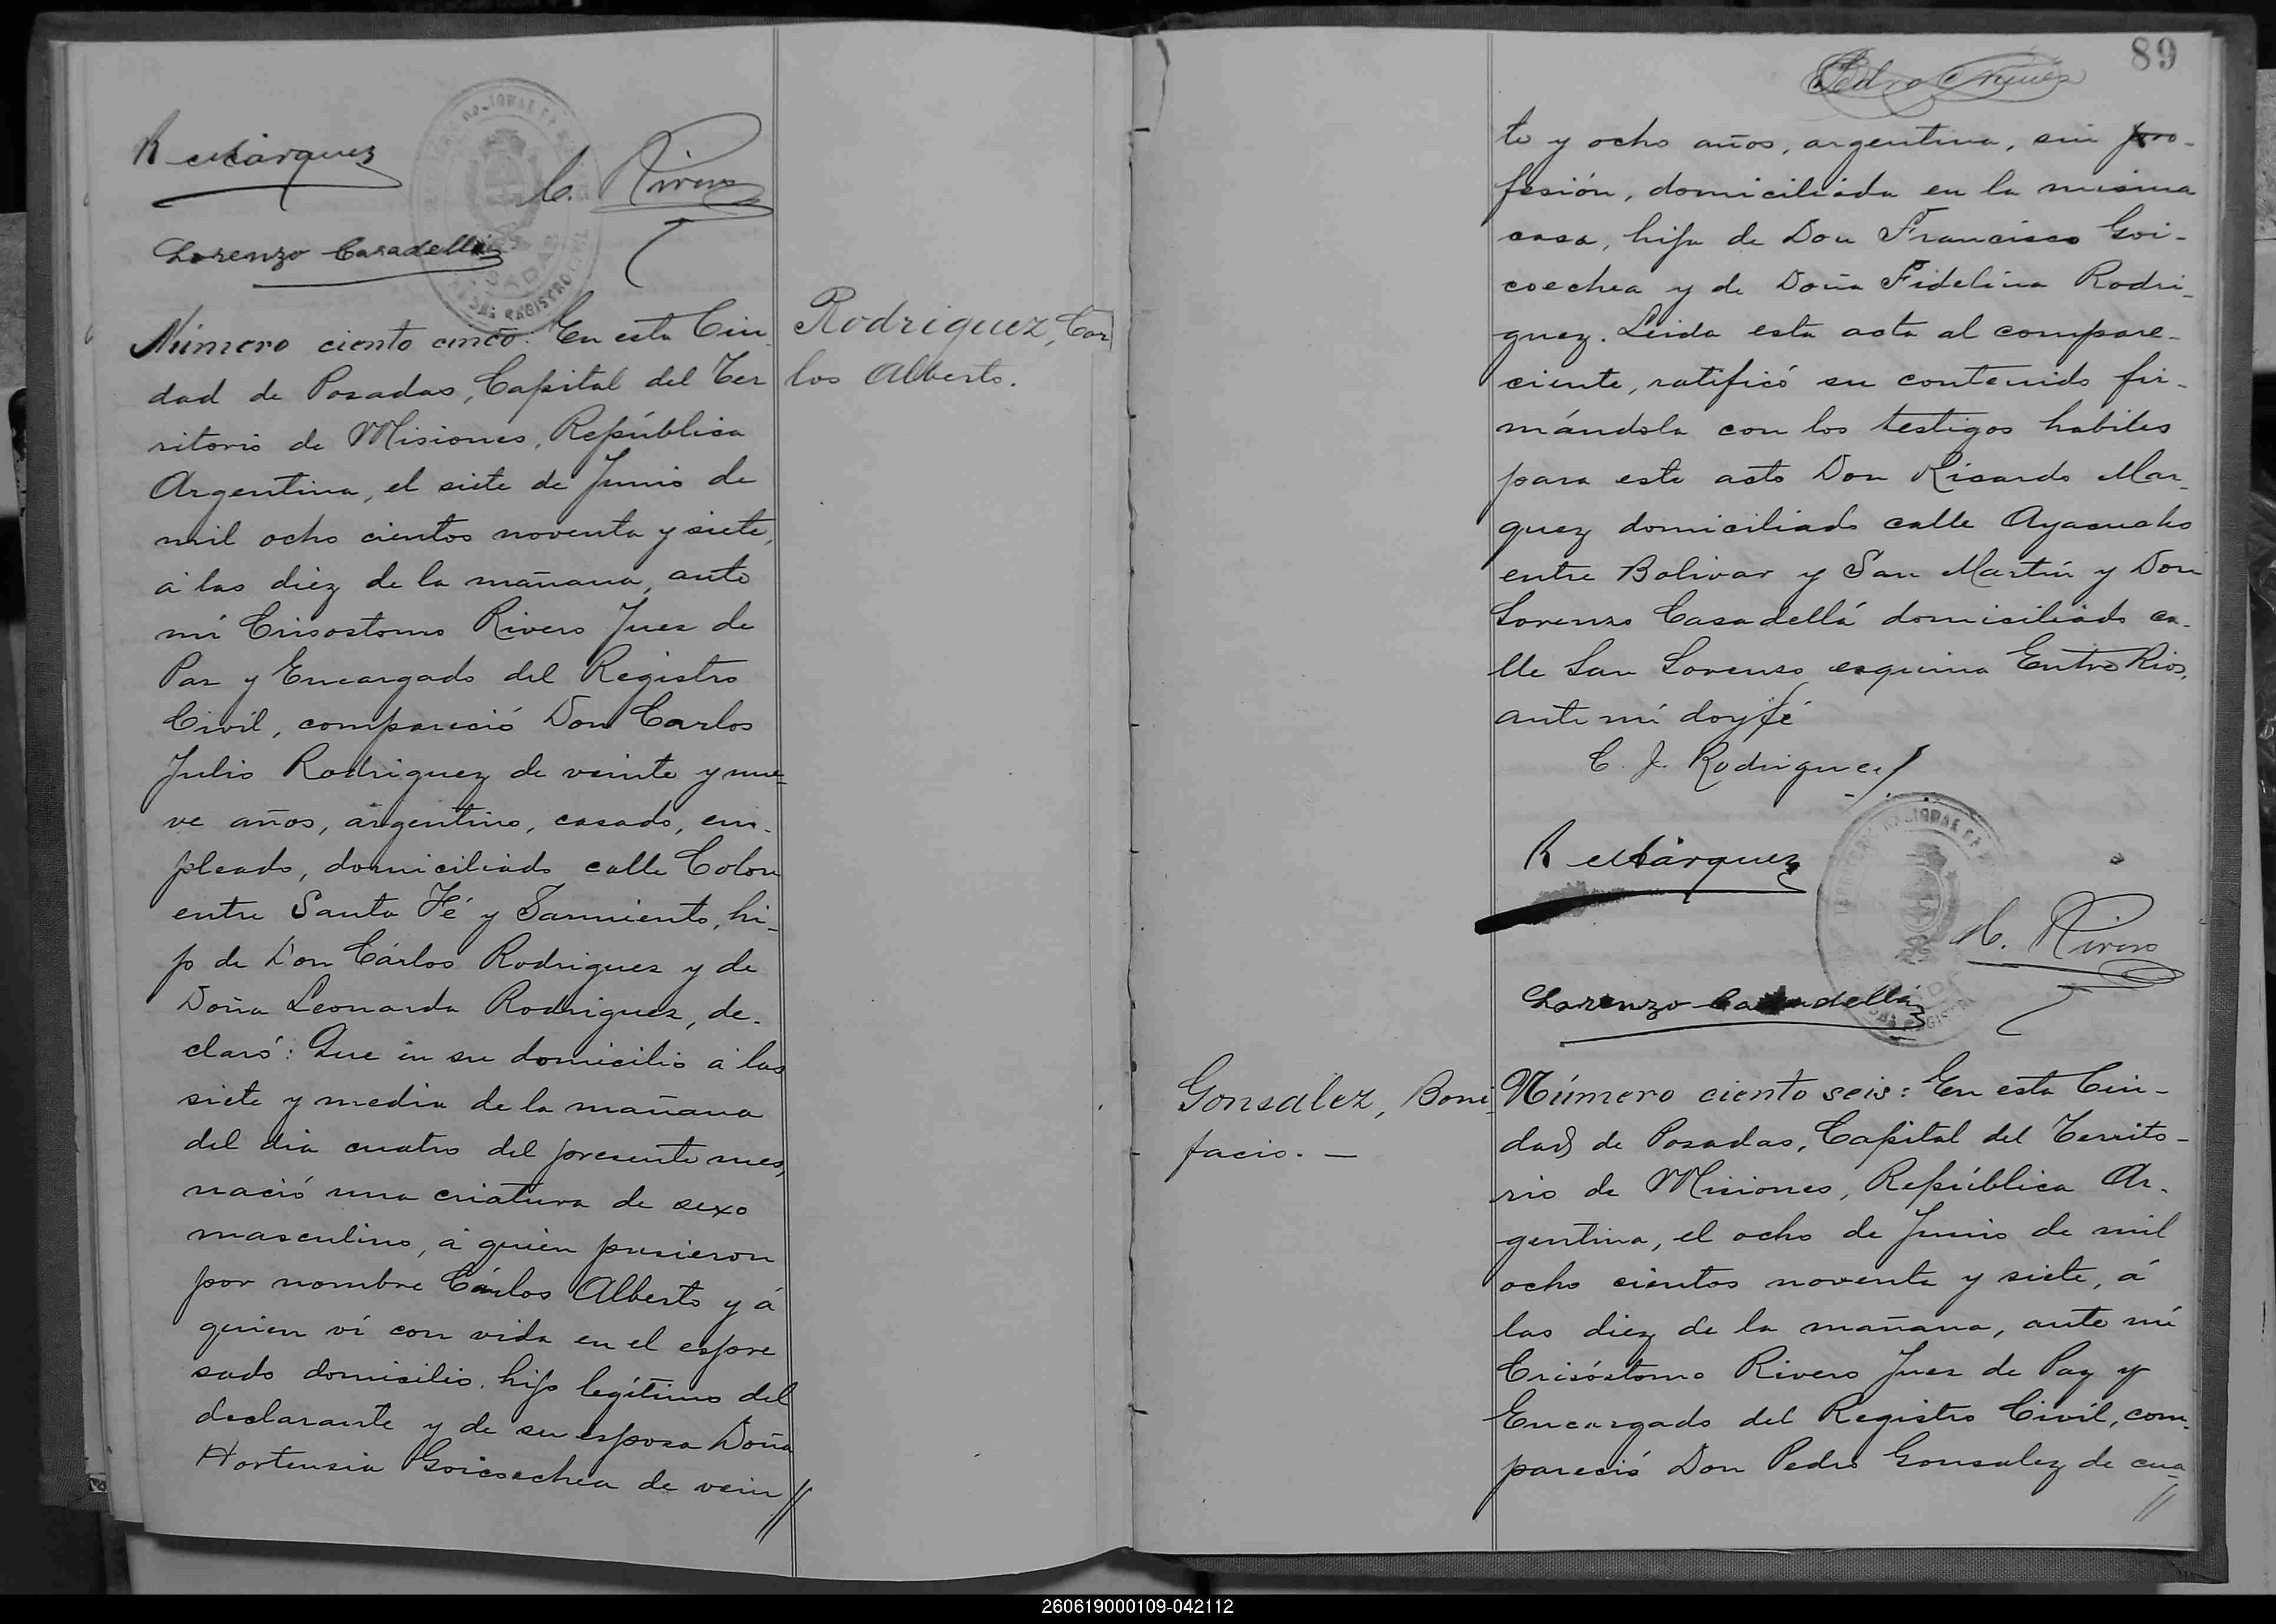 R Márquez
C. Rivero
Lorenzo Casadellá
Número ciento cinco. En esta Ciu
dad de Posadas, Capital del Ter
ritorio de Misiones, República
Argentina, el siete de Junio de
mil ocho cientos noventa y siete,
á las diez de la mañana, ante
mí Crisostomo Rivero Juez de
Paz y Encargado del Registro
Civil, compareció Don Carlos
Julio Rodriguez de veinte y nue-
ve años, argentino, casado, em-
pleado, domiciliado calle Colon
entre Santa Fé y Sarmiento, hi-
jo de Don Cárlos Rodriguez y de
Doña Leonarda Rodriguez, de-
claró: Que en su domicilio á las
siete y media de la mañana
del dia cuatro del presente mes,
nació una criatura de sexo
masculino, á quien pusieron
por nombre Cárlos Alberto y á
quien ví con vida en el espre
sado domicilio, hijo legítimo del
declarante y de su esposa Doña
Hortensia Goicoechea de vein
Rodriguez, Car
los Alberto.
89
Pedro Nuñez
te y ocho años, argentina, sin pro-
fesión, domiciliada en la misma
casa, hija de Don Francisco Goi-
coechea y de Doña Fidelina Rodri-
guez. Leida esta acta al compare-
ciente, ratificó su contenido fir-
mándola con los testigos habiles
para este acto Don Ricardo Mar-
quez domiciliado calle Ayacucho
entre Bolivar y San Martín y Don
Lorenzo Casadellá domiciliado ca-
lle San Lorenzo esquina Entre Rios,
ante mí doy fé
C. J. Rodriguez
R Márquez
C. Rivero
Lorenzo Casadellá
Gonsalez, Boni
facio. —
Número ciento seis: En esta Ciu-
dad de Posadas, Capital del Territo-
rio de Misiones, República Ar-
gentina, el ocho de Junio de mil
ocho cientos noventa y siete, á
las diez de la mañana, ante mí
Crisóstomo Rivero Juez de Paz y
Encargado del Registro Civil, com-
pareció Don Pedro Gonsalez de cua-
260619000109-042112